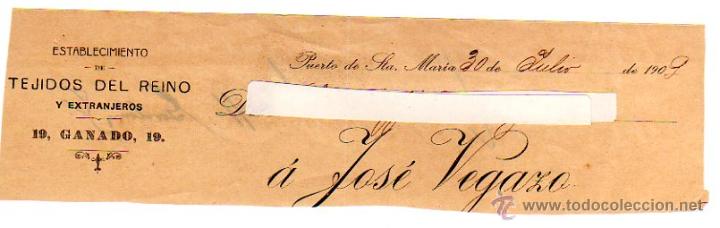 ESTABLECIMIENTO
DE
TEJIDOS DEL REINO
Y EXTRANJEROS
19, GANADO, 19.
Puerto de Sta. Maria 30 de Julio de 1909
D.
á José Vegazo
www.todocoleccion.net